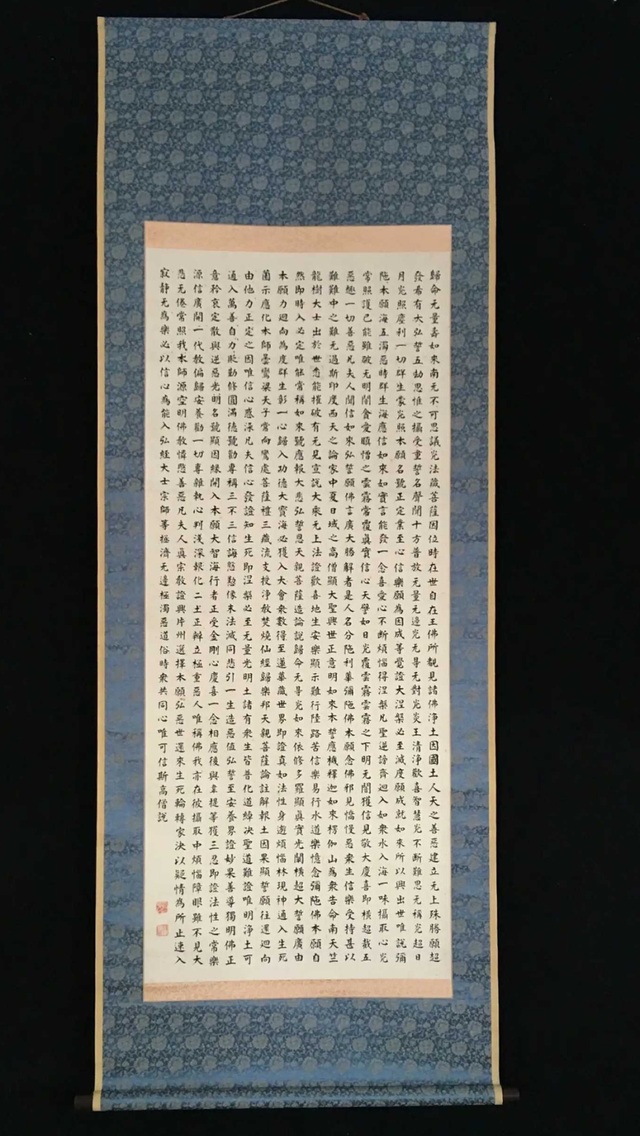 歸命无量壽如來南无不可思議光法藏菩薩因位時在世自在王佛所覩見諸佛淨土因國土人天之善惡建立无上殊勝願超
發希有大弘誓五劫思惟之攝受重誓名聲聞十方普放无量无邊光无㝵无對光炎王清淨歡喜智慧光不斷難思无稱光超日
月光照塵刹一切群生蒙光照本願名號正定業至心信樂願為因成等覺證大涅槃必至滅度願成就如來所以興出世唯說彌
陁本願海五濁惡時群生海應信如來如實言能發一念喜愛心不斷煩惱得涅槃凡聖逆謗齊迴入如衆水入海一味攝取心光
常照護已能雖破无明闇貪愛瞋憎之雲霧常覆真實信心天譬如日光覆雲霧雲霧之下明无闇獲信見敬大慶喜即橫超截五
惡趣一切善惡凡夫人聞信如來弘誓願佛言廣大勝解者是人名分陁利華彌陁佛本願念佛邪見憍慢惡衆生信樂受持甚以
難難中之難无過斯印度西天之論家中夏日域之高僧顯大聖興世正意明如來本誓應機釋迦如來楞伽山為衆告命南天竺
龍樹大士出於世悉能摧破有无見宣說大乘无上法證歡喜地生安樂顯示難行陸路苦信樂易行水道樂憶念彌陁佛本願自
然即時入必定唯能常稱如來號應報大悲弘誓恩天親菩薩造論說歸命无㝵光如來依修多羅顯真實光闡橫超大誓願廣由
本願力迴向為度群生彰一心歸入功德大寶海必獲入大會衆數得至蓮華藏世界即證真如法性身遊煩惱林現神通入生死
薗示應化本師曇鸞梁天子常向鸞處菩薩禮三藏流支授淨教焚燒仙經歸樂邦天親菩薩論註解報土因果顯誓願往還迴向
由他力正定之因唯信心惑染凡夫信心發證知生死即涅槃必至无量光明土諸有衆生皆普化道綽決聖道難證唯明淨土可
通入萬善自力貶勤修圓滿德號勸專稱三不三信誨慇懃像末法滅同悲引一生造惡值弘誓至安養界證妙果善導獨明佛正
意矜哀定散與逆惡光明名號顯因緣開入本願大智海行者正受金剛心慶喜一念相應後與韋提等獲三忍即證法性之常樂
源信廣開一代教偏歸安養勸一切專雜執心判淺深報化二土正辯立極重惡人唯稱佛我亦在彼攝取中煩惱障眼雖不見大
悲无倦常照我本師源空明佛教憐愍善惡凡夫人真宗教證興片州選擇本願弘惡世還來生死輪轉家決以疑情為所止速入
寂靜无為樂必以信心為能入弘經大士宗師等拯濟无邊極濁惡道俗時衆共同心唯可信斯高僧說